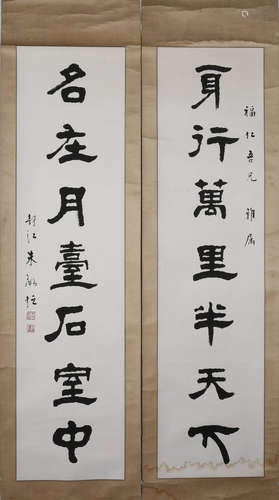 福仁吾兄 雅屬
身行萬里半天下
名在月臺石室中
紫江朱啟鈐